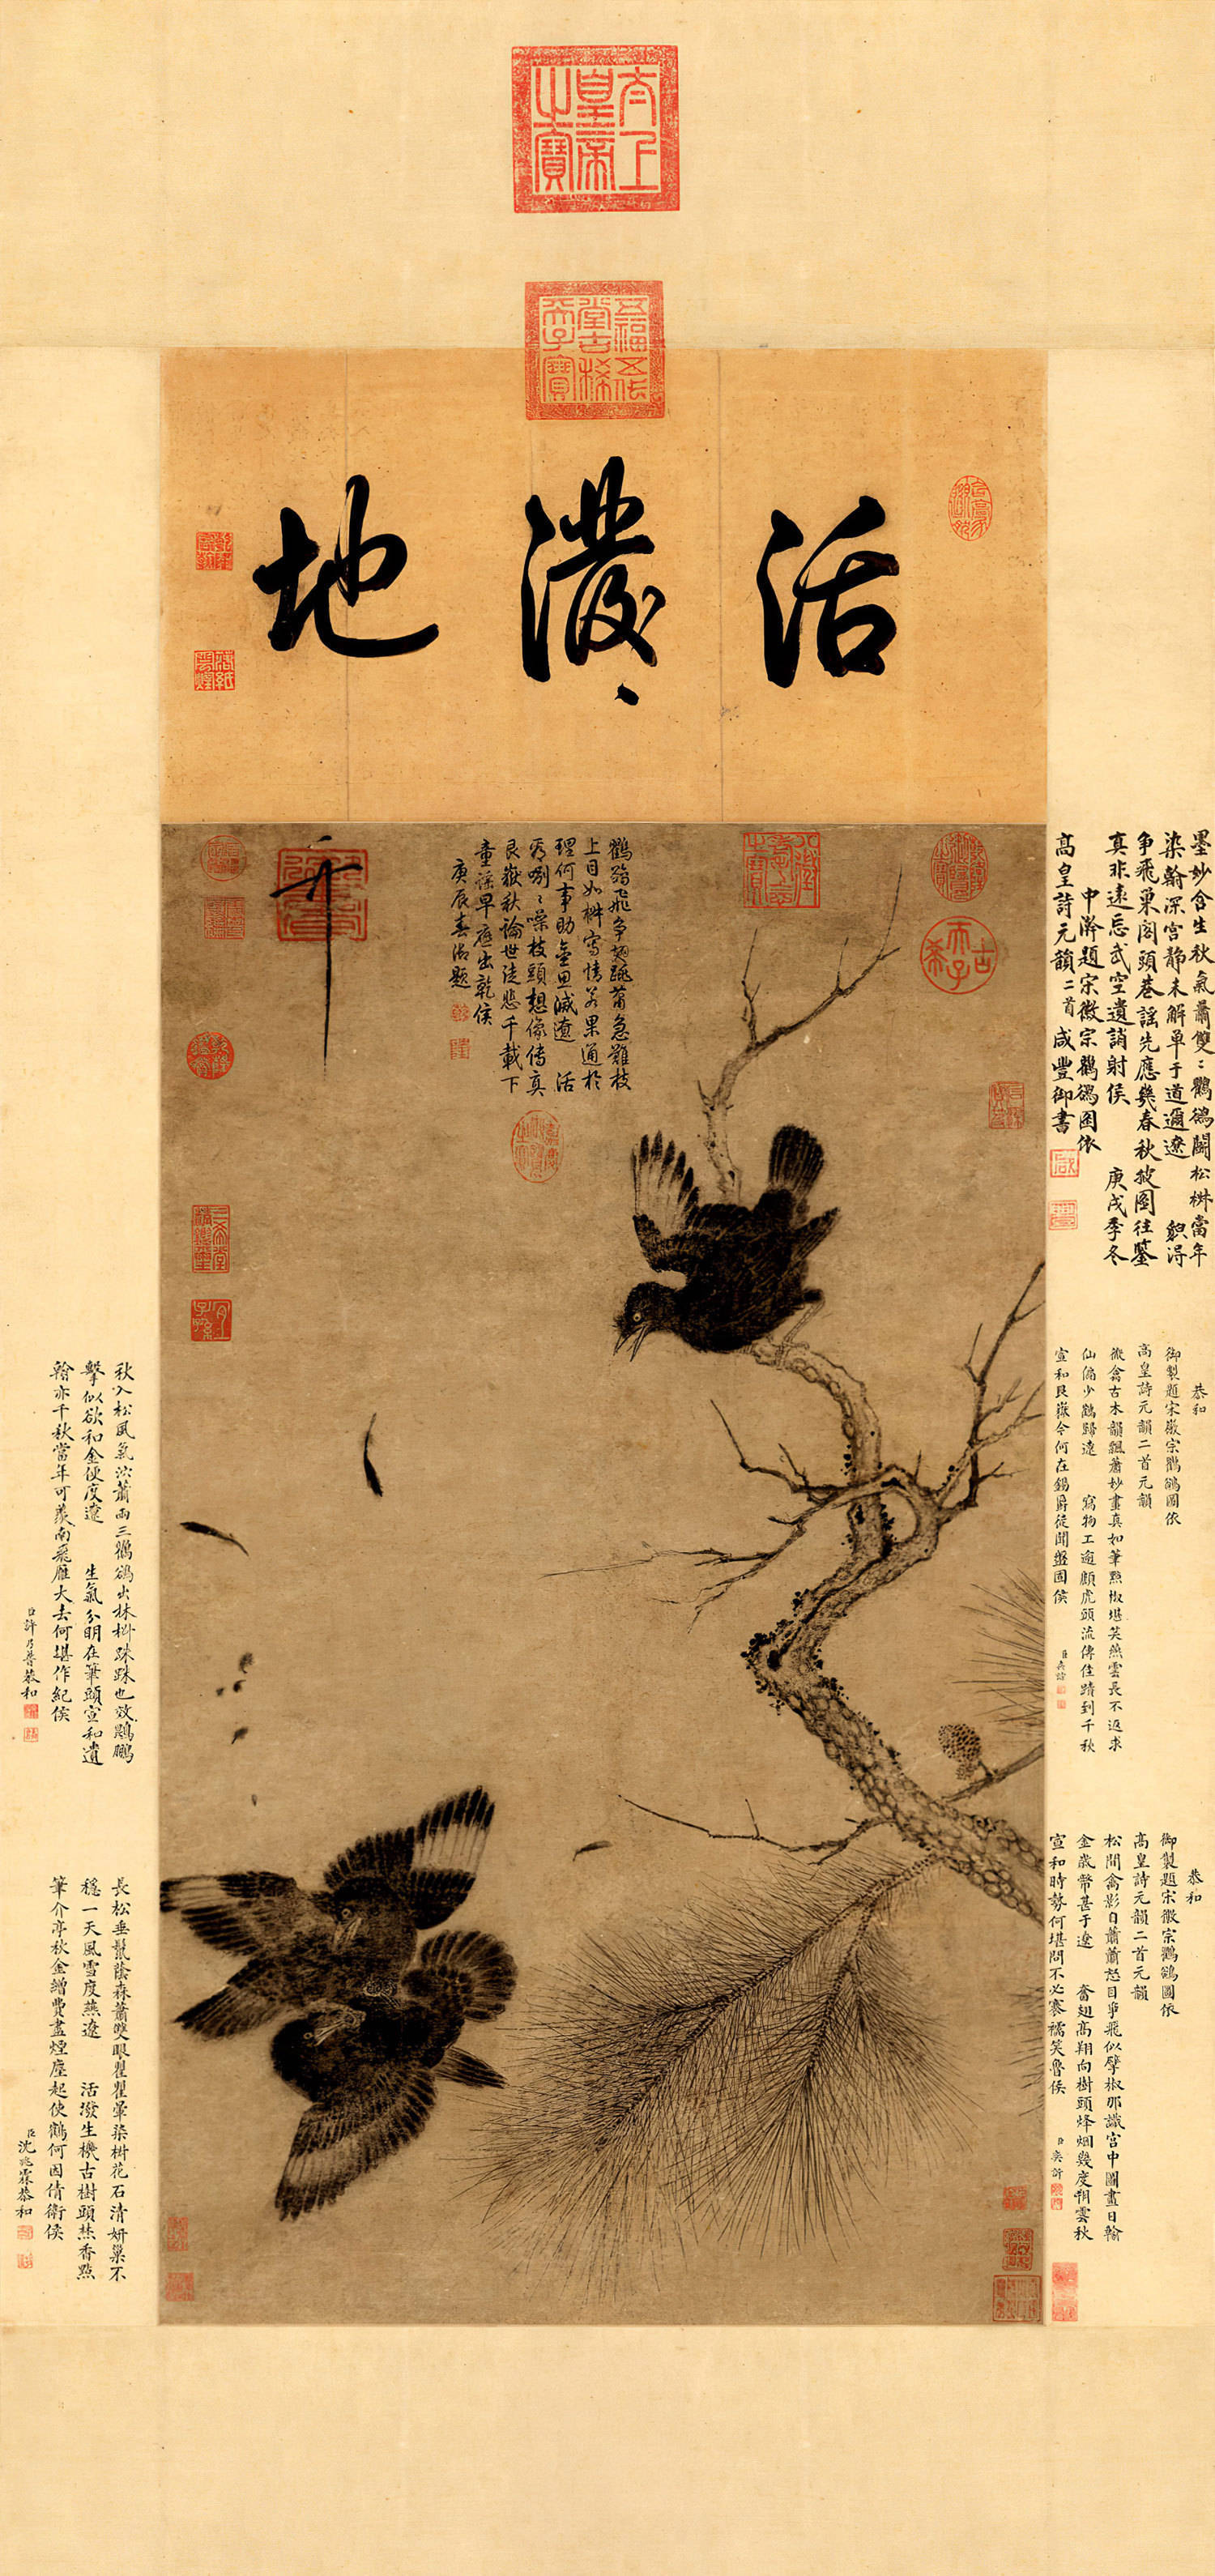 太上皇帝之寶
五福五代堂古稀天子寶
活潑〻地
古希天子
鸜鵒飛爭翅蕭急難枝
上目如椒寫情若果通於
理何事助金思滅遼 活
唎〻噪枝頭想像傳真
艮嶽秋論世徒悲千載下
童謠早應出乾侯
庚辰春御題
墨妙含生秋氣蕭雙〻鸜鵒鬬松椒當年
染翰深宮靜未解單于道遡遼 貌得
爭飛巢閣頭巷謠先應幾春秋披圖往鑒
真非遠忘武空遺誚射侯 庚戌季冬
中澣題宋徽宗鸜鵒圖依
高皇詩元韻二首咸豐御書
恭和
御製題宋徽宗鸜鵒圖依
高皇詩元韻二首元韻
微禽古木韻飄蕭妙畫真如筆點椒堪笑燕雲長不返求
仙偏少鶴歸遼 寫物工逾顧虎頭流傳佳蹟到千秋
宣和艮嶽今何在錫爵徒聞盤固侯
恭和
御製題宋徽宗鸜鵒圖依
高皇詩元韻二首元韻
松間禽影自蕭蕭怒目爭飛似擘椒那識宮中圖畫日翰
金歲幣甚于遼 奮翅高翔向樹頭烽烟幾度朔雲秋
宣和時勢何堪問不必褰襦笑魯侯
臣奕訢
秋入松風氣泬蕭兩三鸜鵒出林椒跦跦也效鵾鵬
擊似欲和金便度遼 生氣分明在筆頭宣和遺
翰亦千秋當年可羨南飛雁大去何堪作紀侯
臣許乃普敬和
長松垂鬣蔭森蕭雙眼瞿瞿暈染椒花石清妍巢不
穩一天風雪度燕遼 活潑生機古樹頭焚香點
筆介亭秋金繒費盡煙塵起使鶴何因倩衛侯
臣沈兆霖恭和